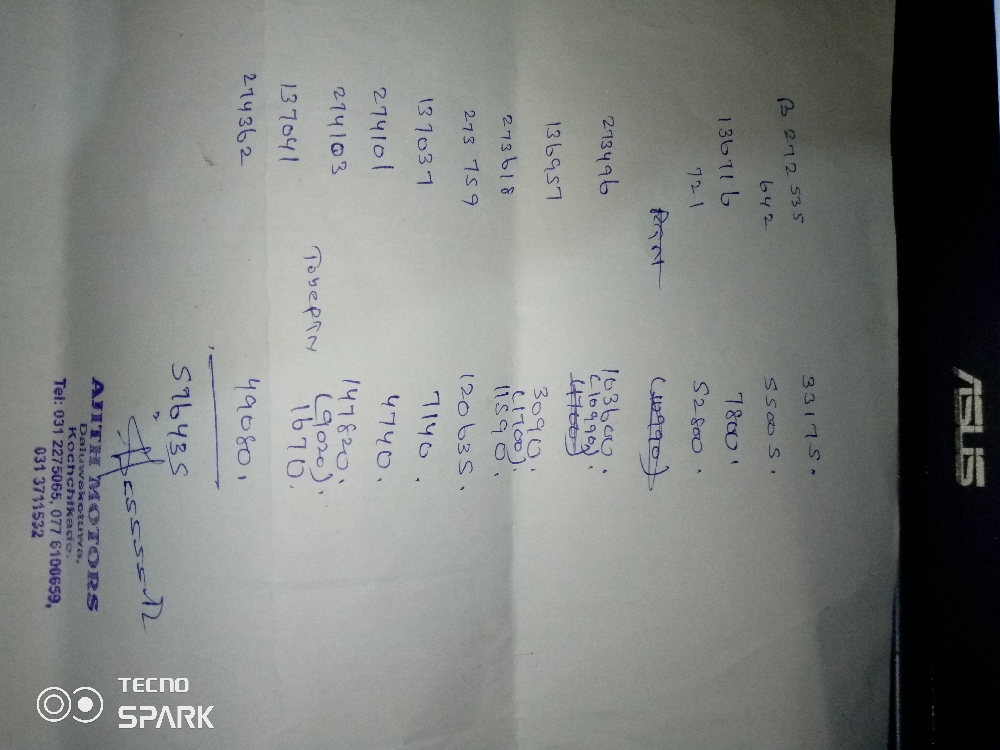 B 272535 33175.
642 55005.
136716 7800.
721 52800.
273496 163600.
(10990)
136957 3090.
273618 (1700).
11590.
273 759 120635.
137037 7140.
274101 4740.
274103 147820.
(9020).
137041 11670.
274362 49080.
576435
AJITH MOTORS
Daluwakotuwa,
Kochchikade.
Tel: 031 2275065, 077 6100659,
031 3711532
ASUS
TECNO
SPARK